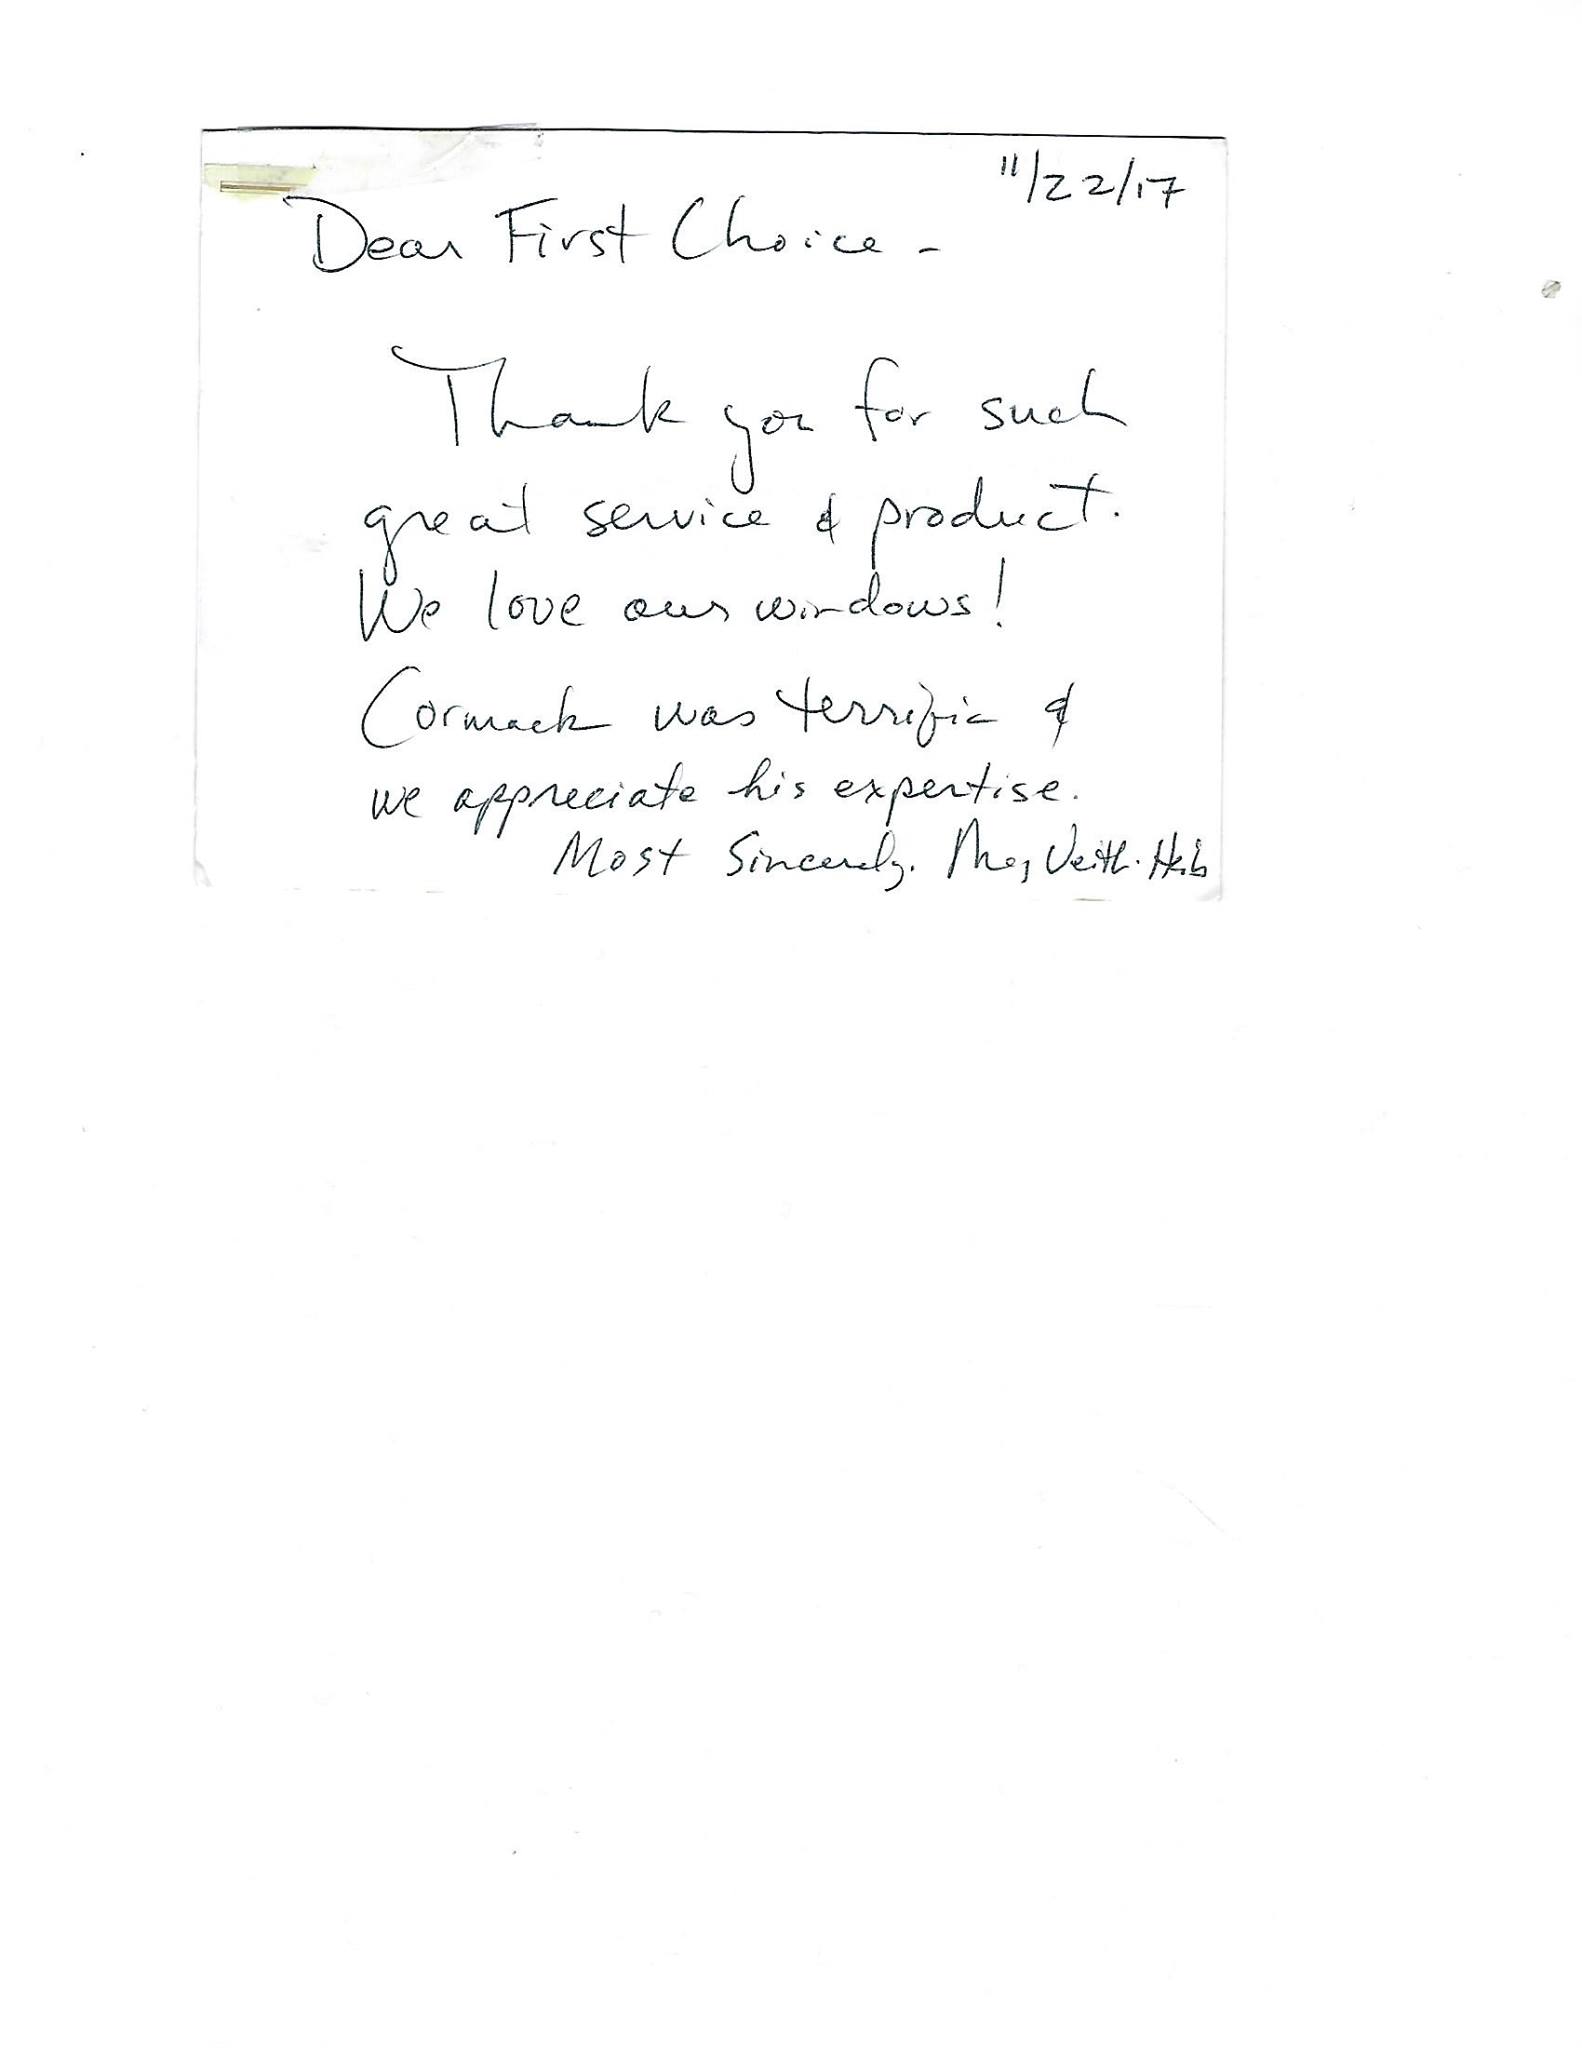 11/22/17
Dear First Choice -
Thank you for such
great service & product.
We love our windows!
Cormack was terrific &
we appreciate his expertise.
Most Sincerely.